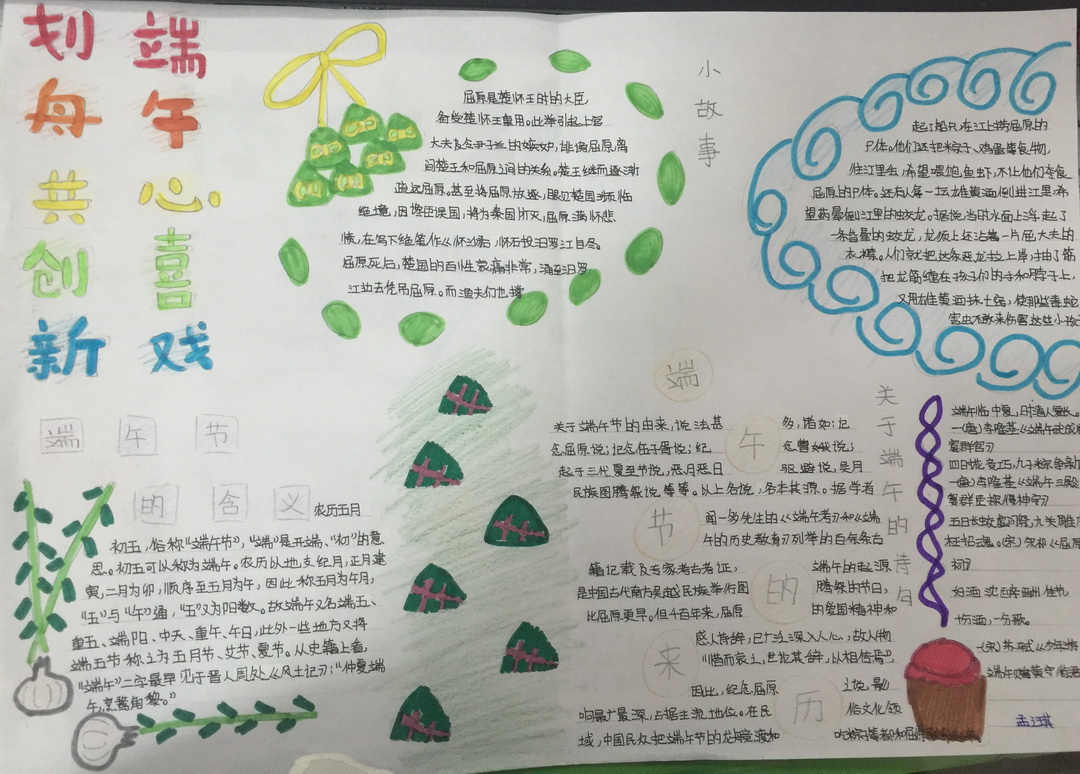 端午心喜戏
划舟共创新
小故事
屈原是楚怀王时的大臣,
备受楚怀王重用。此举引起上官
大夫及令尹子兰的嫉妒,排挤屈原,离
间楚王和屈原之间的关系。楚王继而逐渐
疏远屈原。甚至将屈原放逐,眼见楚国频临
绝境,因馋臣误国,将为秦国所灭,屈原满怀悲
愤,在写下绝笔作《怀沙》后,怀石投汨罗江自尽。
屈原死后,楚国的百姓哀痛非常,涌至汨罗
江边去凭吊屈原。而渔夫们也撑
起了船只,在江上捞屈原的
尸体。他们还把粽子、鸡蛋等食物,
往江里丢,希望喂饱鱼虾,不让他们吞食
屈原的尸体。还有人拿一坛雄黄酒倒进江里,希
望药晕倒江里的蛟龙。据说,当时水面上浮起了
一条昏晕的蛟龙,龙须上还沾着一片屈大夫的
衣襟。人们就把这条恶龙拉上岸,抽了筋
把龙筋缠在孩子们的手和脖子上,
又用雄黄酒抹七窍,使那些毒蛇
害虫不敢来伤害这些小孩子
端午节
的含义
农历五月
初五,俗称“端午节”,“端”是开端、“初”的意
思。初五可以称为端午。农历以地支纪月,正月建
寅,二月为卯,顺序至五月为午,因此称五月为午月,
“五”与“午”通,“五”又为阳数。故端午又名端五、
重五、端阳、中天、重午、午日,此外一些地方又将
端五节称之为五月节、艾节、夏节。从史籍上看,
“端午”二字最早见于晋人周处《风土记》:“仲夏端
午,烹鹜角黎。”
端午节的来历
关于端午节的由来,说法甚多,诸如:记
念屈原说;记念伍子胥说;纪念曹娥说;
起于三代夏至节说,恶月恶日驱避说,吴月
民族图腾祭说等等。以上各说,各本其源。据学者
闻一多先生的《《端午考》和《端
午的历史教育》列举的百余条古
籍记载及专家考古考证,端午的起源
是中国古代南方吴越民族举行图腾祭的节日,
比屈原更早。但千百年来,屈原的爱国精神和
感人诗辞,已广泛深入人心,故人们
“惜而哀之,世论其辞,以相传焉”,
因此,纪念屈原之说,影
响最广最深,占据主流地位。在民俗文化领
域,中国民众把端午节的龙舟竞渡和
吃粽子等都和屈原
关于端午的诗句
端午临中夏,时清人复长。
四日
五日
好酒沈醉酬佳节
十分酒,一分歌。